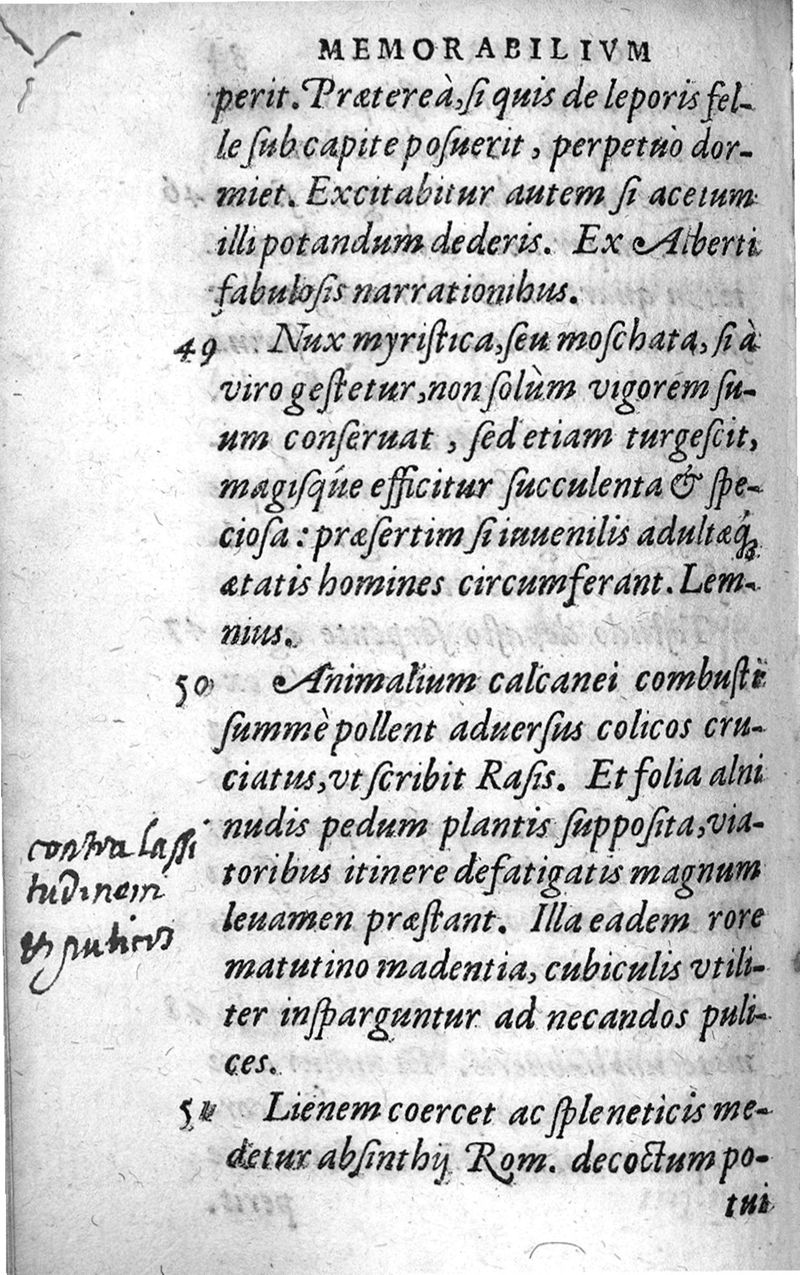 MEMORABILIVM
perit. Prætereà, si quis de leporis fel-
le sub capite posuerit, perpetuò dor-
miet. Excitabitur autem si acetum
illi potandum dederis. Ex Alberti
fabulosis narrationibus.
49 Nux myristica, seu moschata, si à
viro gestetur, non solùm vigorem su-
um conseruat, sed etiam turgescit,
magisq́ue efficitur succulenta & spe-
ciosa: præsertim si iuuenilis adultæq́;
ætatis homines circumferant. Lem-
nius.
50 Animalium calcanei combusti
summè pollent aduersus colicos cru-
ciatus, vt scribit Rasis. Et folia alni
nudis pedum plantis supposita, via-
toribus itinere defatigatis magnum
leuamen præstant. Illa eadem rore
matutino madentia, cubiculis vtili-
ter insparguntur ad necandos puli-
ces.
contra lassi
tudinem
et pulices
51 Lienem coercet ac spleneticis me-
detur absinthij Rom. decoctum po-
tui